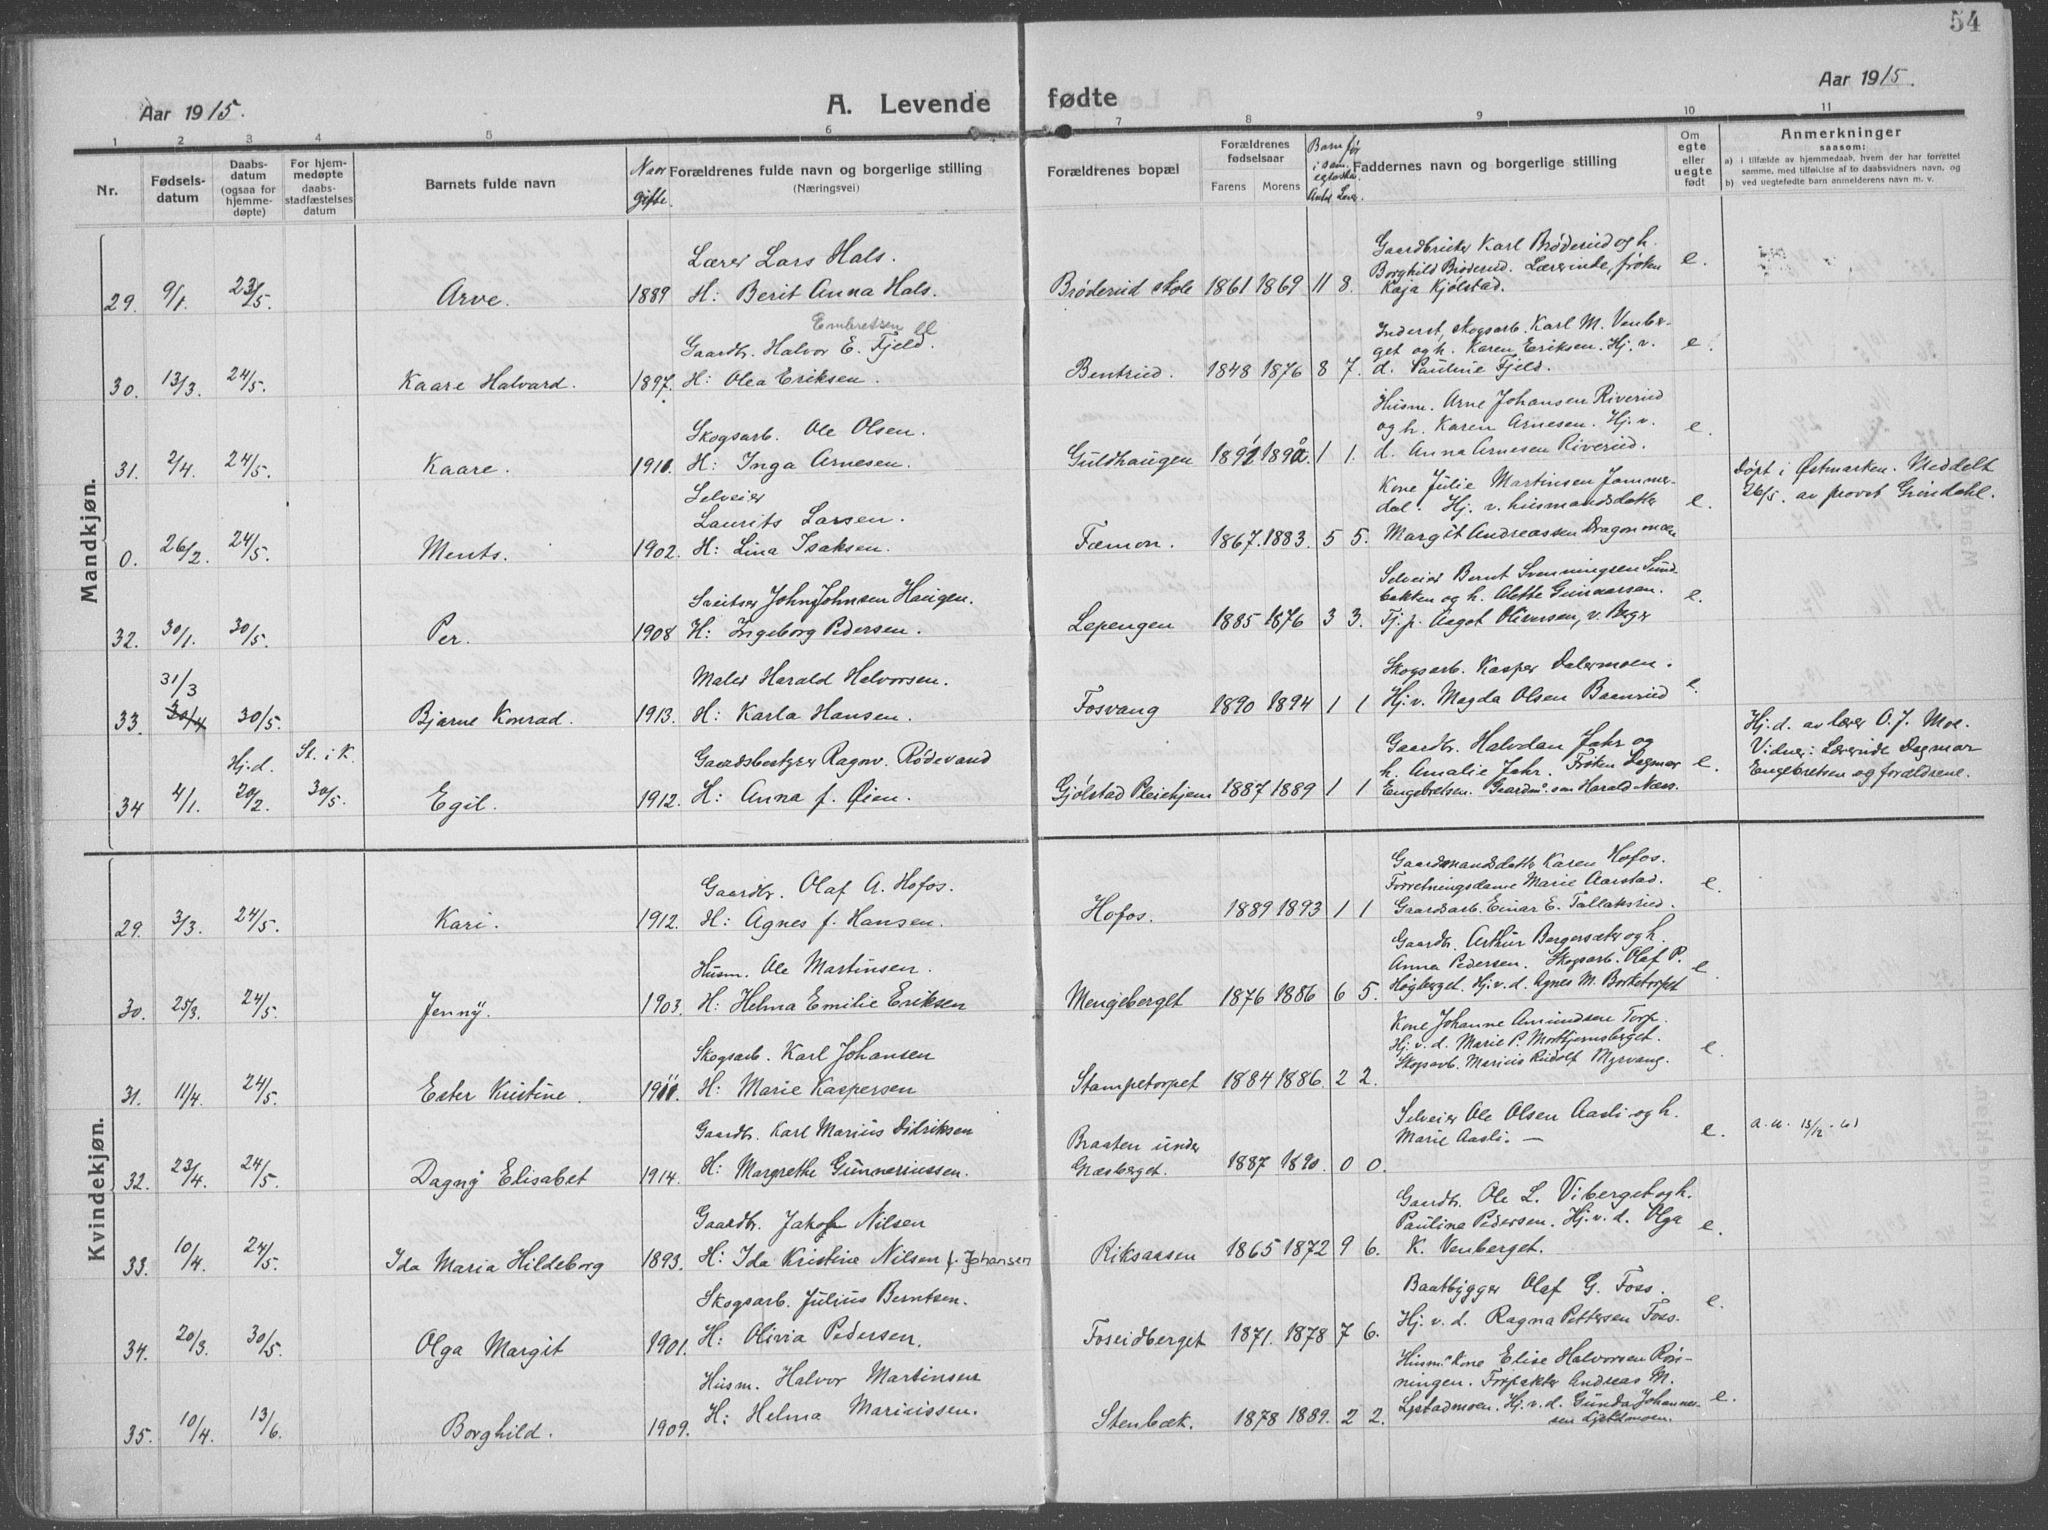 54
Aar 1915.
A. Levende fødte
Aar 1915.
1 2 3 4 5 6 7 8 9 10 11
Nr.
Fødsels-
datum
Daabs-
datum
(ogsaa for
hjemme-
døpte)
For hjem-
medøpte
daabs-
stadfæstelses
datum
Barnets fulde navn
Naar
gifte.
Forældrenes fulde navn og borgerlige stilling
(Næringsvei)
Forældrenes bopæl
Forældrenes
fødselsaar
Farens Morens
Barn før
i sam.
egteskap.
Antal Lever.
Faddernes navn og borgerlige stilling
Om
egte
eller
uegte
født
Anmerkninger
saasom:
a) i tilfælde av hjemmedaab, hvem der har forrettet
samme, med tilføielse af to daabsvidners navn, og
b) ved uegtefødte barn anmelderens navn m. v.
Mandkjøn.
Lærer Lars Hals.
29. 9/1. 23/5. Arve. 1889 H: Berit Anna Hals. Brøderud skole 1861 1869 11 8.
Gaardbruker Karl Brøderud og h.
Borghild Brøderud. Lærerinde, frøken
Kaja Kjølstad.
e.
Embretsen
Gaardbr. Halvor E. Fjeld.
30. 13/3. 24/5. Kaare Halvard. 1897. H: Olea Eriksen. Bentrud. 1848 1876 8 7.
Inderst, skogsarb. Karl M. Venber-
get og h. Karen Eriksen. Hj. v.
d. Pauline Fjeld.
e.
Skogsarb. Ole Olsen.
31. 2/4. 24/5. Kaare. 1911. H: Inga Arnesen. Guldhaugen 1 1.
Husm. Arne Johansen Riverud
og h. Karen Arnesen. Hj. v.
d. Anna Arnesen Riverud.
e.
Selveier
Laurits Larsen.
0. 26/2. 24/5. Ments. 1902. H: Lina Isaksen. Fæmon. 1867. 1883. 5 5.
Kone Julie Martinsen Jammer-
dal. Hj. v. husmandsdatter
Margit Andreassen Dragonmoen
e.
Døpt i Østmarken. Meddelt
26/5. av provst Grøndahl.
Sveitser John Johnsen Haugen.
32. 30/1. 30/5. Per. 1908 H: Ingeborg Pedersen. Lepengen 1885 1876 3 3.
Selveier Bernt Svenningsen Sund-
bakken og h. Alette Gunnarsen.
Tj. p. Aagot Oliversen, v. Berger
e.
Maler Harald Halvorsen.
31/3
33. 30/4 30/5. Bjarne Konrad. 1913. H: Karla Hansen. Fosvang 1890 1894 1 1
Skogsarb. Kasper Dalermoen.
Hj. v. Magda Olsen Baanrud
e.
Gaardsbestyrer Ragnv. Rødevand
Hj. d. St. i K.
34 4/1. 20/2. 30/5. Egil. 1912. H: Anna f. Øien. Gjølstad Pleiehjem 1887 1889 1 1
Gaardbr. Halvdan Jahr og
h. Amalie Jahr. Frøken Dagmar
Engebretsen. Gaardm. søn Harald Næss.
e.
Hj. d. av lærer O. J. Moe.
Vidner: Lærerinde Dagmar
Engebretsen og forældrene.
Kvindekjøn.
Gaardbr. Olaf A. Hofos.
29. 3/3. 24/5. Kari. 1912. H: Agnes f. Hansen. Hofos. 1889 1893 1 1
Gaardmandsdatter Karen Hofos.
Forretningsdame Marie Aarstad.
Gaardsarb. Einar E. Tallaksrud.
e.
Husm. Ole Martinsen.
30. 25/3. 24/5. Jenny. 1903. H: Helma Emilie Eriksen Mengeberget 1876 1886 6 5.
Gaardbr. Arthur Bergersæter og h.
Anna Pedersen. Skogsarb. Olaf P.
Høgberget. Hj. v. d. Agnes M. Borketorpet
e.
Skogsarb. Karl Johansen
31. 11/4. 24/5. Ester Kristine. 1911. H: Marie Kaspersen Stampetorpet 1884 1886. 2 2.
Kone Johanne Amundsen Torp.
Hj. v. d. Marie P. Morttjernsberget.
Skogsarb. Marius Rudolf Myrvang.
e.
Gaardbr. Karl Marius Didriksen
32. 23/4. 24/5. Dagny Elisabet 1914. H: Margrethe Gunneriussen. Braaten under
Græsberget. 1887 1890. 0 0.
Selveier Ole Olsen Aasli og h.
Marie Aasli. —
e.
Gaardbr. Jakob Nilsen
33. 10/4. 24/5. Ida Maria Hildeborg 1893. H: Ida Kristine Nilsen f. Johansen Riksaasen 1865 1872 9 6.
Gaardbr. Ole L. Viberget og h.
Paulina Pedersen. Hj. v. d. Olga
K. Venberget.
e.
Skogsarb. Julius Berntsen.
34. 20/3. 30/5. Olga Margit 1901. H: Olivia Pedersen. Foseidberget 1871. 1878 7 6.
Baatbygger Olaf G. Foss.
Hj. v. d. Ragna Pettersen Foss.
e.
Husm. Halvor Martinsen
35. 10/4. 13/6. Borghild. 1909. H: Helma Mariussen. Stenbæk. 1878 1889. 2 2.
Husm. kone Elise Halvorsen Røn-
ningen. Forpakter Andreas M.
Ljøstadmoen. Hj. v. d. Gunda Johannes-
sen Ljøstadmoen.
e.